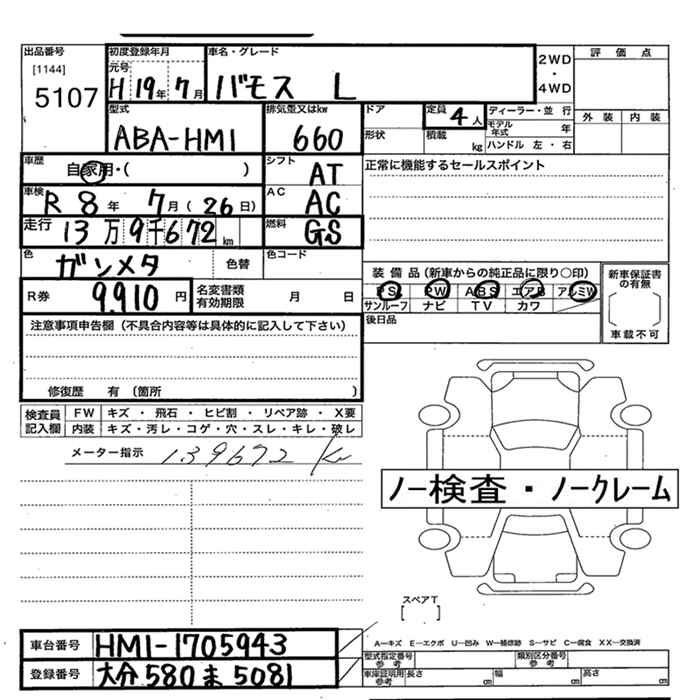 出品番号 初度登録年月 車名・グレード
[1144] 元号
5107 H 19年 7月 バモス L
2WD・4WD
評価点
外装 内装
型式 排気量又はkw ドア 定員 4人 ディーラー・並行
ABA-HM1 660 形状 積載 kg モデル年式 年
ハンドル 左・右
車歴 自家用・( ) シフト AT
正常に機能するセールスポイント
車検 R 8年 7月(26日) AC AC
走行 13万9千672km 燃料 GS
色 ガンメタ 色替 色コード
装備品(新車からの純正品に限り○印)
新車保証書の有無
R券 9,910円 名変書類有効期限 月 日
PS PW ABS エアB アルミW
サンルーフ ナビ TV カワ
車載不可
注意事項申告欄(不具合内容等は具体的に記入して下さい)
後日品
修復歴 有(箇所 )
検査員記入欄 FW キズ・飛石・ヒビ割・リペア跡・X要
内装 キズ・汚レ・コゲ・穴・スレ・キレ・破レ
メーター指示 139672 Km
ノー検査・ノークレーム
スペアT
[ ]
A―キズ E―エクボ U―凹み W―補修跡 S―サビ C―腐食 XX―交換済
車台番号 HM1-1705943
型式指定番号参考 類別区分番号参考
登録番号 大分 580 ま 5081
車庫証明用参考 長さ cm 幅 cm 高さ cm